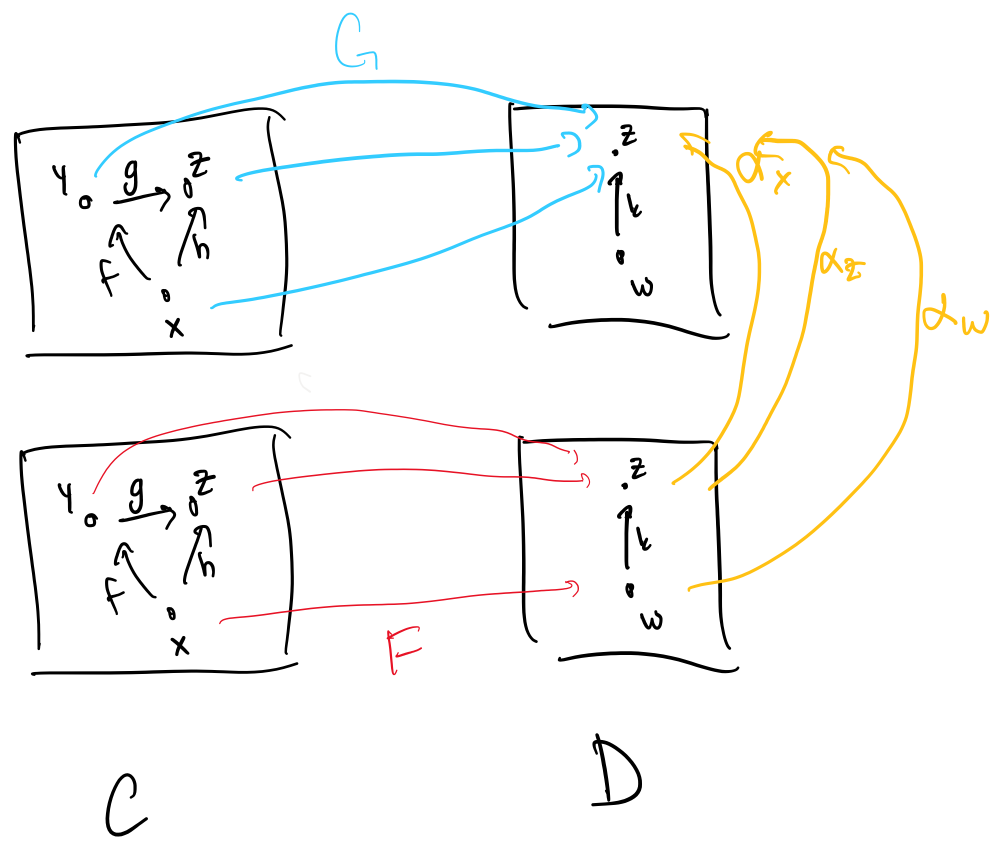 G
Y g Z
f h
X
Z
k
W
αx
αz
αw
Y g Z
f h
X
Z
k
W
F
C D